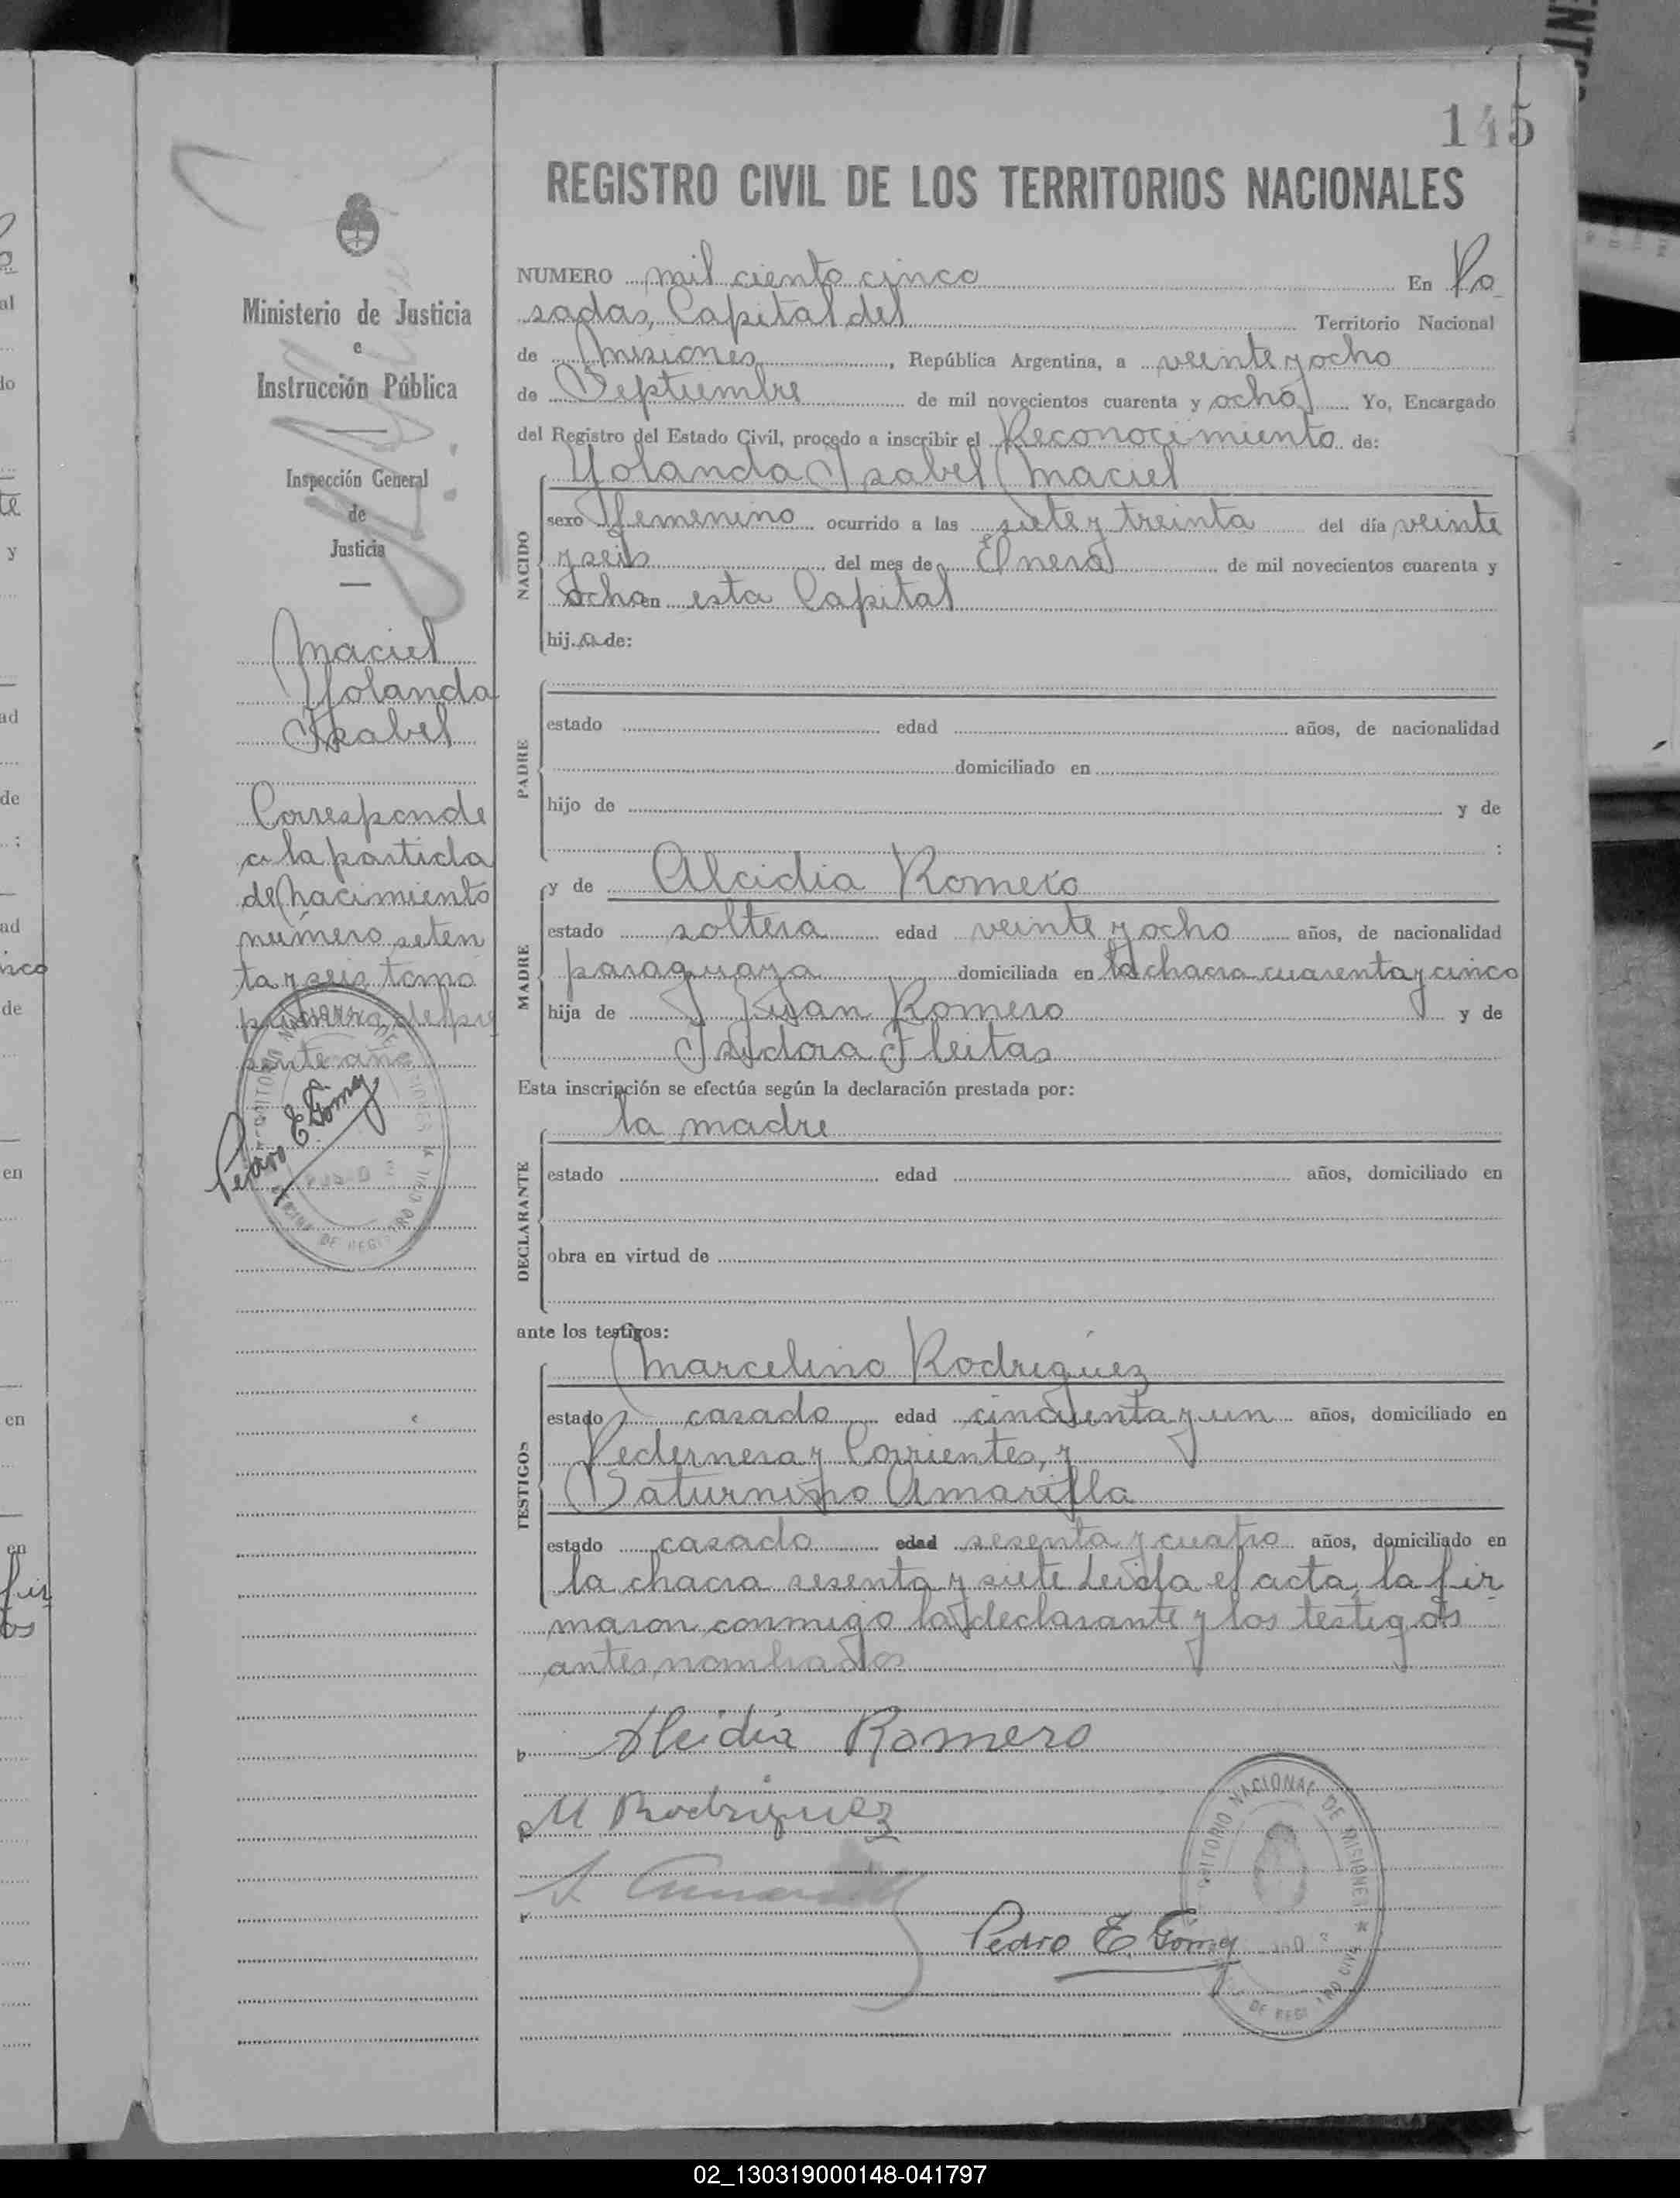 145
REGISTRO CIVIL DE LOS TERRITORIOS NACIONALES
Ministerio de Justicia
e
Instrucción Pública
Inspección General
de
Justicia
Maciel
Yolanda
Isabel
Corresponde
a la partida
de nacimiento
número seten
ta y seis tomo
primero del pre
sente año
Pedro E. Gómez
NUMERO mil ciento cinco En Po
sadas, Capital del Territorio Nacional
de Misiones, República Argentina, a veinte y ocho
de Septiembre de mil novecientos cuarenta y ocho Yo, Encargado
del Registro del Estado Civil, procedo a inscribir el Reconocimiento de:
Yolanda Isabel Maciel
NACIDO
sexo femenino ocurrido a las siete y treinta del día veinte
y seis del mes de Enero de mil novecientos cuarenta y
ocho en esta Capital
hija de:
PADRE
estado edad años, de nacionalidad
domiciliado en
hijo de y de
:
MADRE
y de Alcidia Romero
estado soltera edad veinte y ocho años, de nacionalidad
paraguaya domiciliada en la chacra cuarenta y cinco
hija de Juan Romero y de
Isidora Fleitas
Esta inscripción se efectúa según la declaración prestada por:
DECLARANTE
la madre
estado edad años, domiciliado en
obra en virtud de
ante los testigos:
TESTIGOS
Marcelino Rodríguez
estado casado edad cincuenta y un años, domiciliado en
Pedernera y Corrientes, y
Saturnino Amarilla
estado casado edad sesenta y cuatro años, domiciliado en
la chacra sesenta y siete Leida el acta, la fir
maron conmigo la declarante y los testigos
antes nombrados
Alcidia Romero
M Rodriguez
Pedro E. Gómez
TERRITORIO NACIONAL DE MISIONES
02_130319000148-041797